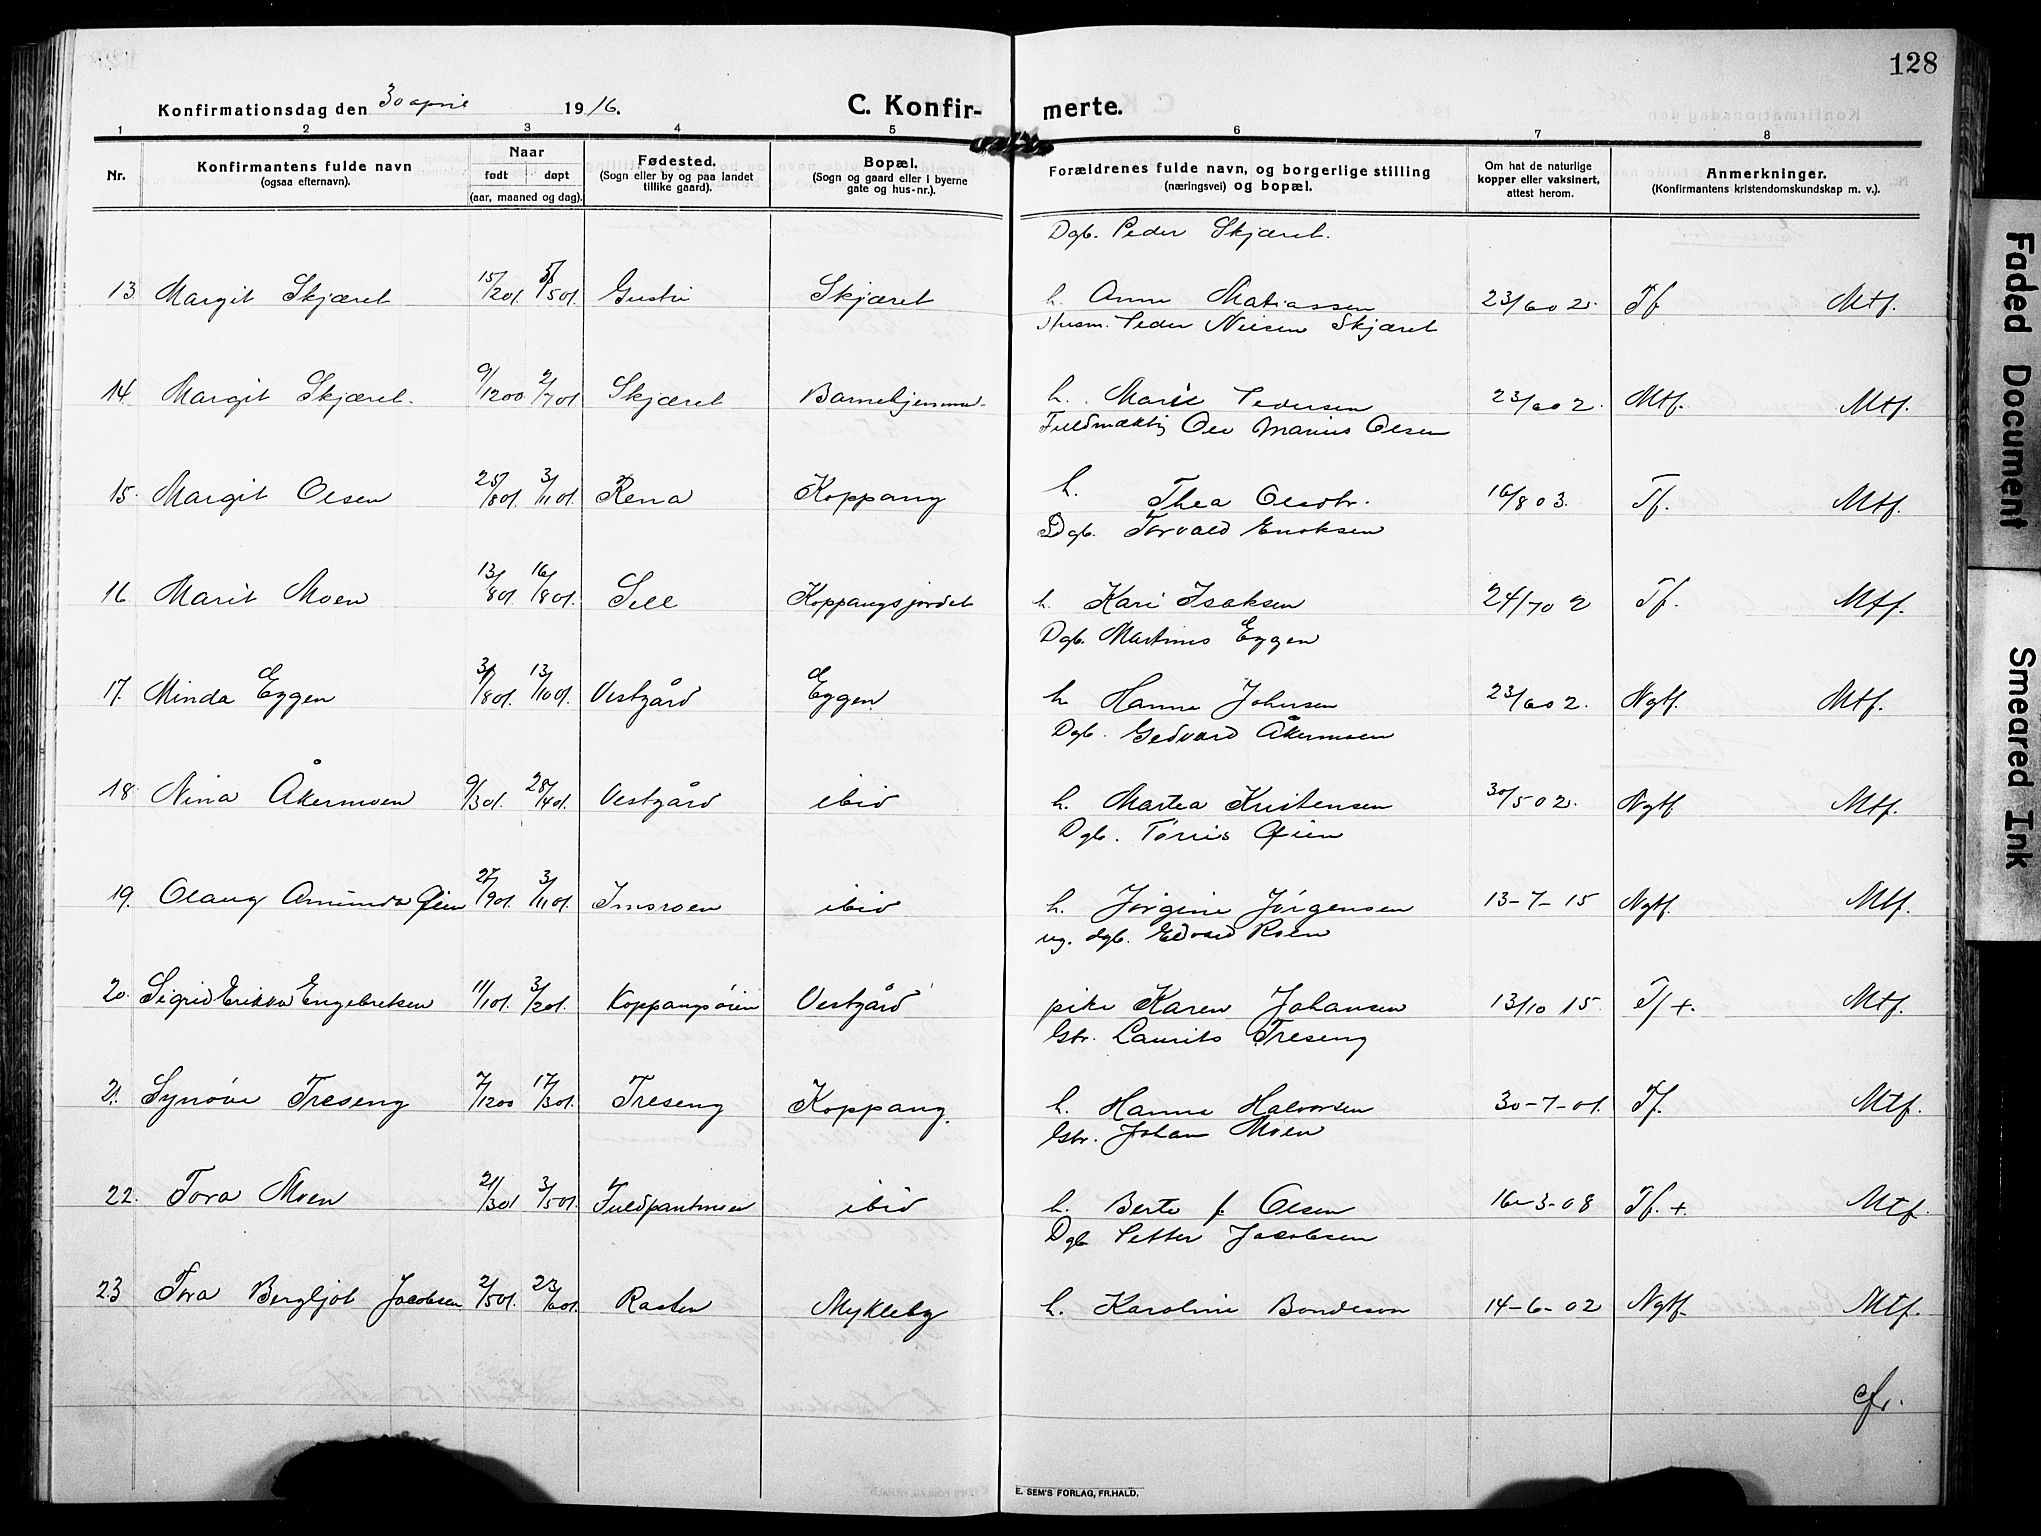 128
Konfirmationsdag den 30 april 1916.
C. Konfirmerte.
1 2 3 4 5 6 7 8
Nr.
Konfirmantens fulde navn
(ogsaa efternavn).
Naar
født døpt
(aar, maaned og dag).
Fødested.
(Sogn eller by og paa landet
tillike gaard).
Bopæl.
(Sogn og gaard eller i byerne
gate og hus-nr.).
Forældrenes fulde navn, og borgerlige stilling
(næringsvei) og bopæl.
Om hat de naturlige
kopper eller vaksinert,
attest herom.
Anmerkninger.
(Konfirmantens kristendomskundskap m. v.).
Dgb. Peder Skjæret.
13 Margit Skjæret 15/2 01. 5/5 01. Skjæret h. Anne Matiassen 23/6 02. Tf Mtf.
Husm. Peder Nilsen Skjæret
14 Margit Skjæret. 9/12 00 2/7 01. Skjæret Barnehjemmet. h. Marie Pedersen 23/6 02. Mtf. Mtf.
Fuldmæktig Ole Marius Olsen
15 Margit Olsen 25/8 01. 3/11 01. Rena Koppang h. Thea Olsdtr. 16/8 03. Tf. Mtf.
Dgb. Torvald Enoksen
16 Marit Moen 13/8 01. 16/8 01. Sell Koppangsjordet h. Kari Isaksen 24/7 02 Tf. Mtf.
Dgb. Martinus Eggen
17. Minda Eggen 31/8 01. 13/10 01. Vestgård Eggen h. Hanna Johnsen 23/6 02. Ngtf. Mtf.
Dgb. Gedvard Åkermoen
18 Nina Åkermoen 9/3 01. 28/4 01. Vestgård ibid h. Martea Kristensen 30/5 02. Ngtf Mtf.
Dgb. Tørris Øien
19. Olaug Amunda Øien 27/9 01. 3/11 01. Imsroen ibid h. Jørgine Jørgensen 13-7-15 Ngtf. Mtf.
ug. dgb. Edvard Roen
20. Sigrid Erikka Engebretsen 11/1 01. 3/2 01. Koppangsøien Vestgård pike Karen Johansen 13/10 15. Tf +. Mtf.
Gbr. Laurits Treseng
21. Synøve Treseng 7/12 00 17/3 01. Treseng Koppang. h. Hanna Halvorsen 30-7-01. Tf. Mtf.
Gbr. Johan Moen
22. Tora Moen 21/3 01 3/5 01. ibid h. Berte J. Olsen 16-3-08 Tf. +. Mtf
Dgb Petter Jacobsen
23 Tora Bergljot Jacobsen 2/5 01. 23/6 01. Rasten Mykleby h. Karoline Bondeson 14-6-02 Ngtf. Mtf.
cfr.
E. SEM'S FORLAG, FR.HALD.
Faded Document
Smeared Ink